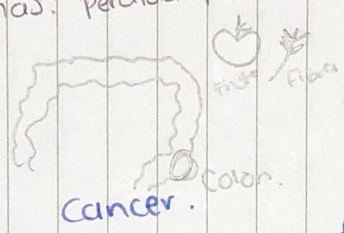 Fruta Fibra
Colon.
Cancer.